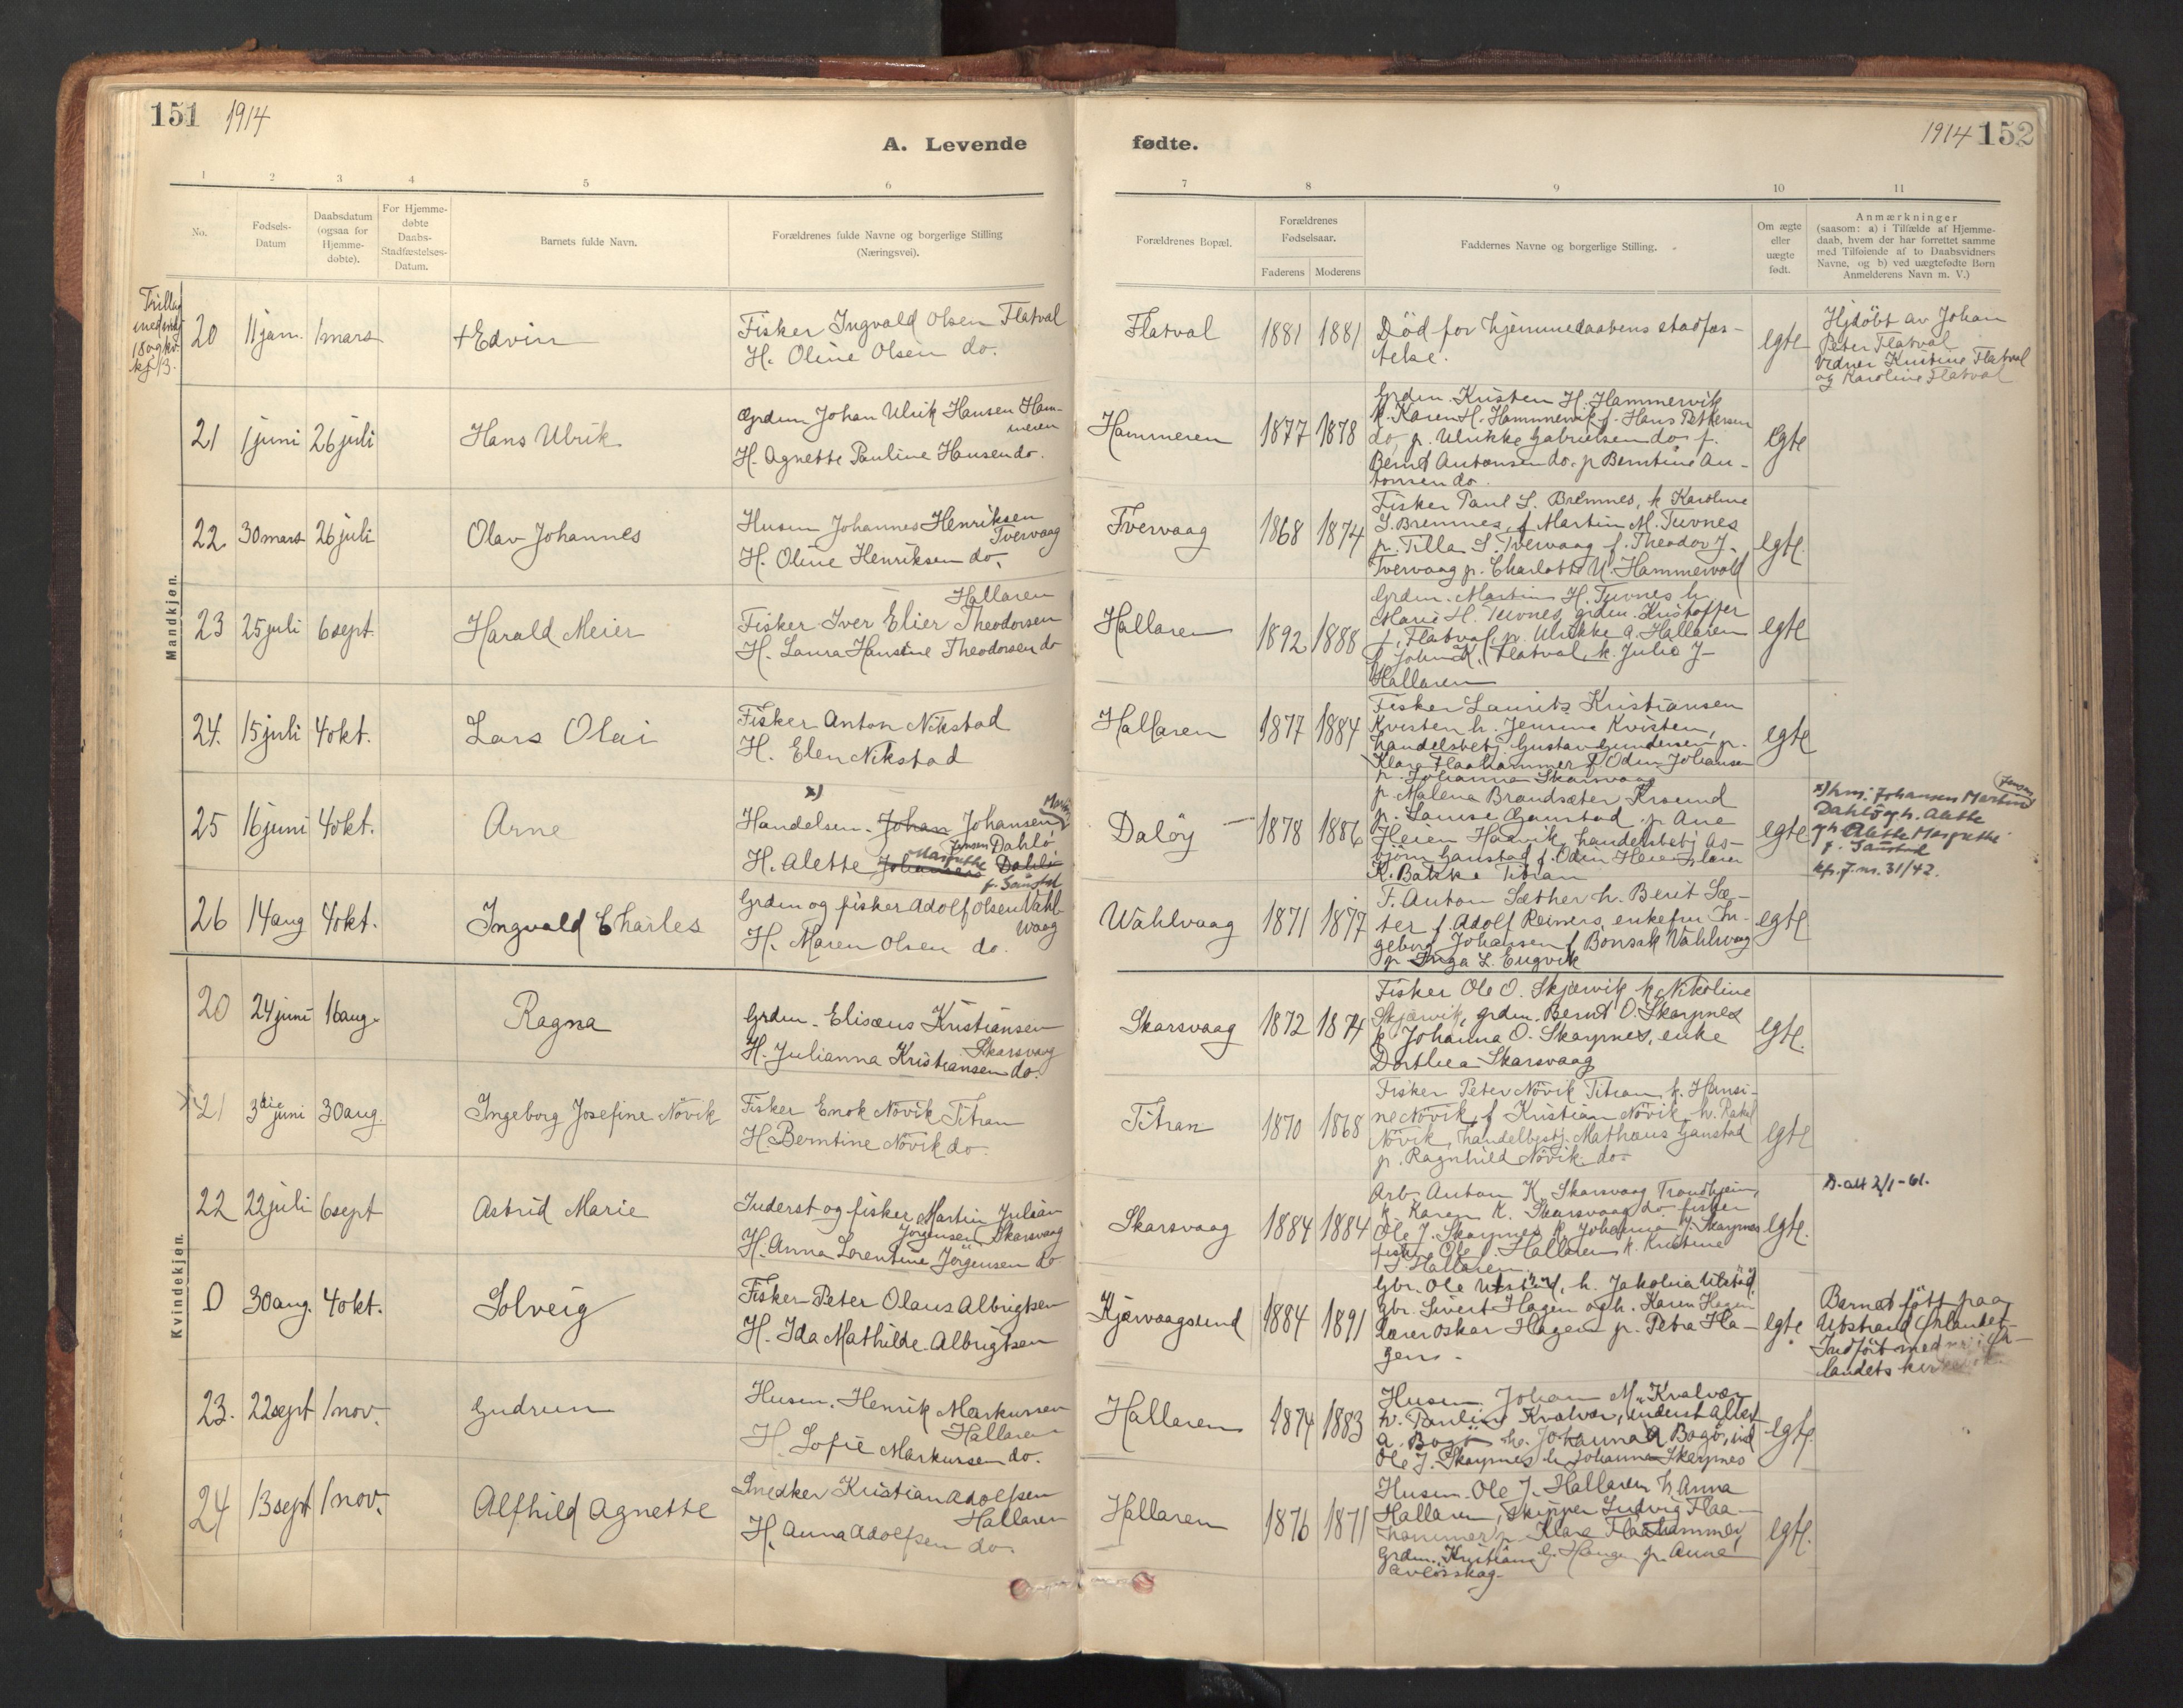 151 1914
A. Levende fødte.
1914 152
1 2 3 4 5 6 7 8 9 10 11
No.
Fødsels-
Datum
Daabsdatum
(ogsaa for
Hjemme-
døbte).
For Hjemme-
døbte
Daabs-
Stadfæstelses-
Datum.
Barnets fulde Navn.
Forældrenes fulde Navne og borgerlige Stilling
(Næringsvei).
Forældrenes Bopæl.
Forældrenes
Fødselsaar.
Faderens Moderens
Faddernes Navne og borgerlige Stilling.
Om ægte
eller
uægte
født.
Anmærkninger
(saasom: a) i Tilfælde af Hjemme-
daab, hvem der har forrettet samme
med Tilføiende af to Daabsvidners
Navne, og b) ved uægtefødte Børn
Anmelderens Navn m. V.)
Mandkjøn.
Trilling
med
18 og kv.
kj 13.
20 11 jan. 1 mars +Edvin
Fisker Ingvald Olsen Flatval
H. Oline Olsen do.
Flatval 1881 1881
Död før hjemmedaabens stadfæs-
telse.
egte
Hjdöbt av Johan
Peter Flatval
Vidner Kristine Flatval
og Karoline Flatval
21 1 juni 26 juli Hans Ulrik
Grdm Johan Ulrik Hansen Ham-
meren
H. Agnette Pauline Hansen do.
Hammeren 1877 1878
Grdm. Kristen H. Hammervik
k. Karen H. Hammervik f. Hans Pettersen
do p. Ulrikke Gabrielsen do f.
Bernt Antonsen do. p Berntine An-
tonsen do.
egte
22. 30 mars 26 juli Olav Johannes
Husm Johannes Henriksen
Tvervaag
H. Oline Henriksen do.
Tvervaag 1868 1874
Fisker Paul S. Bremnes, k Karoline
S. Bremnes, f Martin M. Tuvnes
p. Tilla S. Tvervaag f. Theodor J.
Tvervaag p. Charlotte U. Hammervold
egte.
23 25 juli 6 sept. Harald Meier
Hallaren
Fisker Iver Elier Theodorsen
H. Laura Hansine Theodorsen do
Hallaren 1892 1888
Grdm. Martin H. Tuvnes h.
Marie H. Tuvnes, grdm. Kristoffer
J. Flatval, p. Ulrikke A. Hallaren
f Johan K. Flatval, k. Julie J
Hallaren
egte
24. 15 juli 4 okt. Lars Olai
Fisker Anton Nikstad
H. Elen Nikstad
Hallaren 1877 1884
Fisker Laurits Kristiansen
Kvisten h. Jensine Kvisten,
handelsbetj Gustav Gundersen p.
Klara Flaahammer f Odin Johansen
p. Johanna Skarsvaag
egte
25 16 juni 4 okt. Arne
x)
Handelsm. Johan Johansen Martin
Jensen Dahlö
H. Alette Johansen Margrethe Dahlö
f. Gaustad
Dalöy 1878 1886
p. Malena Brandsæter Kr.sund
p. Louise Gaustad p. Ane
Heien Hanvik, handelsbetj As-
björn Gaustad f. Odin Heien, lærer
K. Bakke Titran
egte
x) hm. Johansen Martin Jensen
Dahlö og h. Alette
gh Alette Margrethe
f. Gaustad
kfr. j.nr. 31/42.
26 14 aug 4 okt. Ingvald Charles
Grdm og fisker Adolf Olsen Vahl-
vaag
H. Maren Olsen do.
Wahlvaag 1871 1877
F. Anton Sæther h. Berit Sæ-
ter f. Adolf Reiners, enkefru In-
geborg Johansen f Bonsak Vahlvaag
p Inga L. Engvik
egte
Kvindekjøn.
20 24 juni 16 aug. Ragna
Grdm. Elisæus Kristiansen
Skarsvaag
H. Julianna Kristiansen do.
Skarsvaag 1872 1874
Fisker Ole O. Skjærvik k Nikoline
Skjærvik, grdm. Bernt O. Skarpnes
k Johanna O. Skarpnes, enke
Dorthea Skarsvaag
egte.
x 21 3die juni 30 aug. Ingeborg Josefine Növik
Fisker Enok Növik Titran
H. Berntine Növik do.
Titran 1870 1868
Fisker Peter Növik Titran k. Hansi-
ne Növik, f Kristian Növik h. Rakel
Növik, handelbestj. Mathæus Gaustad
p. Ragnhild Növik do.
egte
22 22 juli 6 sept Astrid Marie
Inderst og fisker Martin Julian
Jörgensen Skarsvaag
H. Anna Lorentine Jörgensen do
Skarsvaag 1884 1884
Arb. Anton K. Skarsvaag Trondhjem,
k Karen K. Skarsvaag do. fisker
Ole J. Skarpnes k. Johanna J. Skarpnes
fisker Ole J. Hallaren k. Kristine
J. Hallaren.
egte.
D. att 2/1-61.
0 30 aug. 4 okt. Solveig
Fisker Peter Olaus Albrigtsen
H. Ida Mathilde Albrigtsen
Kjervaagsund 1884 1891
Gbr. Ole Utstad, h. Jakobia Utstad
Gbr. Sivert Hagen og h. Karen Hagen
lærer Oskar Hagen p. Petra Ha-
gen.
egte
Barnet född paa
Utstrand Ørlandet
Indfört med nr i Ør-
landets kirkebok
23. 22 sept 1 nov. Gudrun
Husm. Henrik Markussen
Hallaren
H. Sofie Markussen do.
Hallaren 1874 1883
Husm. Johan M. Kvalvær
h. Pauline Kvalvær, inderst Albert
A. Bogö h. Johanna A Bogö, ind
Ole J. Skarpnes h. Johanna Skarpnes
egte.
24 13 sept 1 nov. Alfhild Agnette
Snedker Kristian Adolfsen
Hallaren
H. Anna Adolfsen do.
Hallaren 1876 1871
Husm. Ole J. Hallaren h Anna
Hallaren, skipper Ludvig Flaa-
hammer p. Klara Flaahammer,
Grdm. Kristian G. Hauge p. Anna
egte.